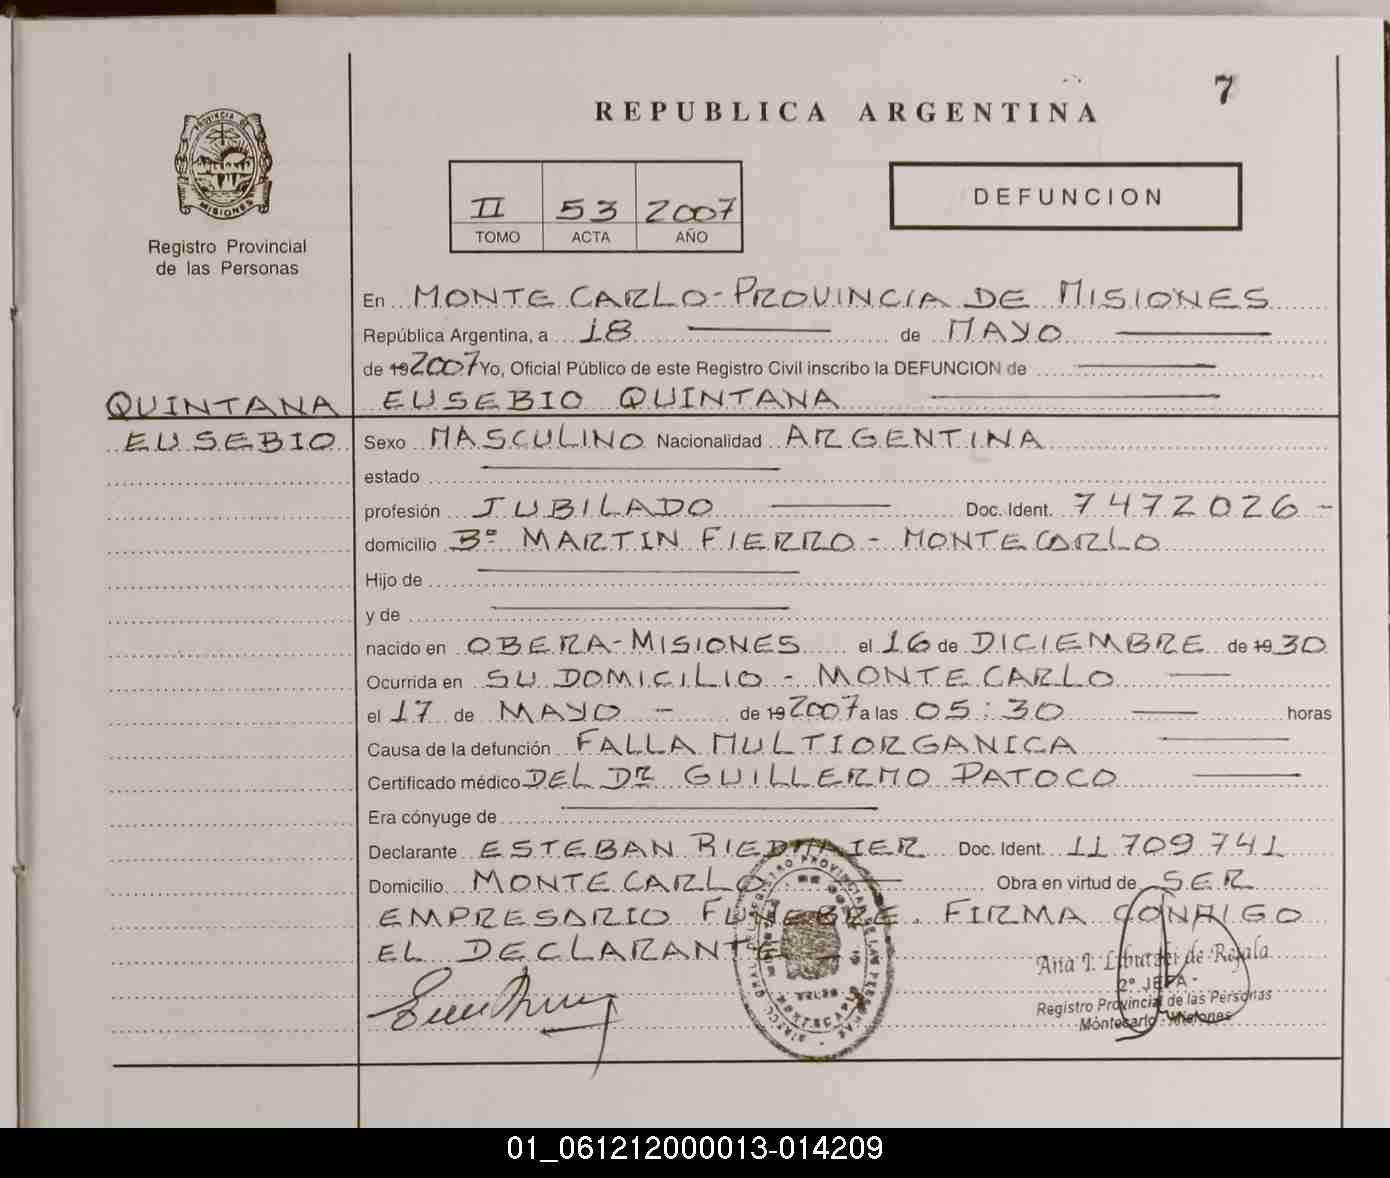 7
REPUBLICA ARGENTINA
PROVINCIA DE
MISIONES
Registro Provincial
de las Personas
II 53 2007
TOMO ACTA AÑO
DEFUNCION
En MONTECARLO - PROVINCIA DE MISIONES
República Argentina, a 18 de MAYO
de 19 2007 Yo, Oficial Público de este Registro Civil inscribo la DEFUNCION de
QUINTANA EUSEBIO QUINTANA
EUSEBIO Sexo MASCULINO Nacionalidad ARGENTINA
estado
profesión JUBILADO Doc. Ident. 7472026 -
domicilio Bº MARTIN FIERRO - MONTECARLO
Hijo de
y de
nacido en OBERA - MISIONES el 16 de DICIEMBRE de 19 30
Ocurrida en SU DOMICILIO - MONTECARLO
el 17 de MAYO - de 19 2007 a las 05:30 horas
Causa de la defunción FALLA MULTIORGANICA
Certificado médico DEL DR GUILLERMO PATOCO
Era cónyuge de
Declarante ESTEBAN RIEDMAIER Doc. Ident. 11709741
Domicilio MONTECARLO Obra en virtud de SER
EMPRESARIO FUNEBRE. FIRMA CONMIGO
EL DECLARANTE
Ana I. de Royala
2º JEFA -
Registro Provincial de las Personas
Montecarlo - Misiones
01_061212000013-014209